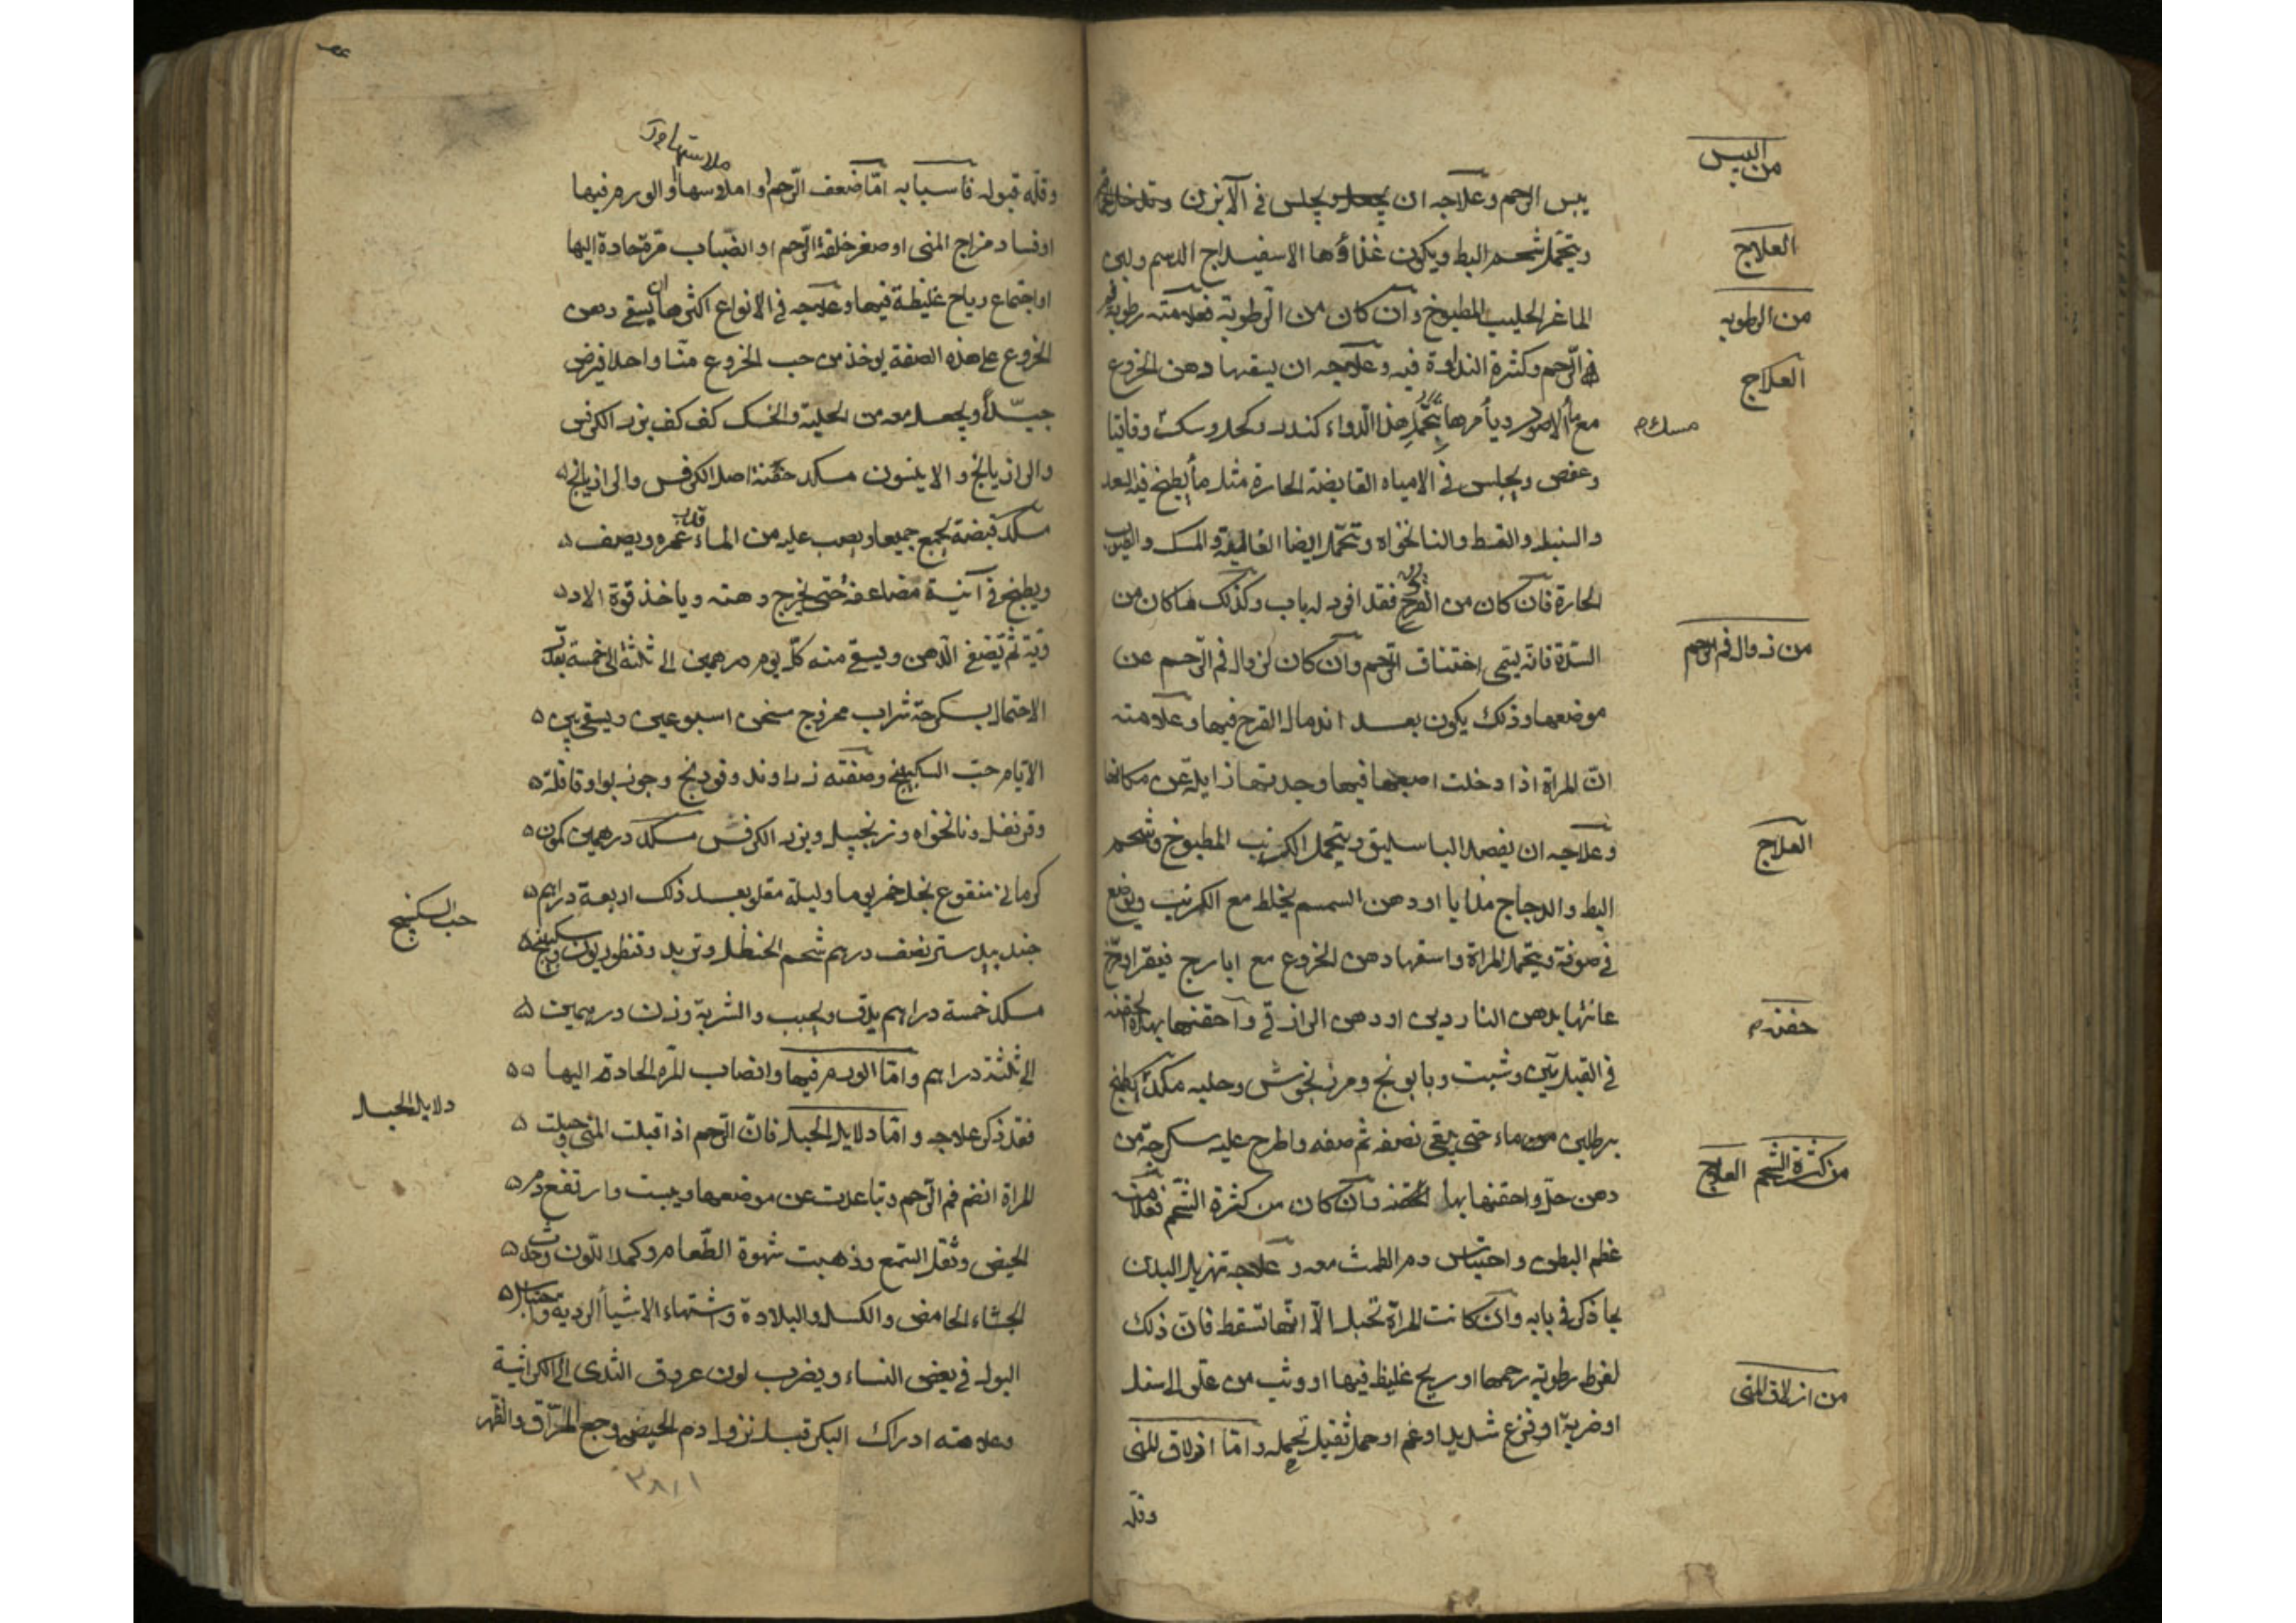 من اليبس
يبس الرحم وعلاجه ان يجلس في الآبزن
العلاج
ويتحمل شحم البط ويكون غذاؤها الاسفيداج الدسم ولبن
من الرطوبه
الماعز الحليب المطبوخ وان كان من الرطوبة فعلامته رطوبة
العلاج
في الرحم وكثرة النداوة فيه وعلاجه ان يسقها دهن الخروع
مع ماء الاصول ويأمرها بتحمل هذا الدواء كندر وكحل وسك وقاقيا
وعفص ويجلس في الامياه القابضة الحارة مثل ماء يطبخ فيه السعد
والسنبل والقسط والنانخواه وتتحمل ايضا الغالية والمسك
الحارة فان كان من القرح فقد افرد له باب وكذلك ما كان من
من زوال فم الرحم
السدة فانه يتمى اختناق الرحم وان كان لزوال فم الرحم عن
موضعها وذلك يكون بعد اندمال القرح فيها وعلامته
ان المراة اذا دخلت اصبعها فيها وجدتها زايلة عن مكانها
العلاج
وعلاجه ان يفصد الباسليق ويتحمل الكرنب المطبوخ وشحم
البط والدجاج مذابا او دهن السمسم يخلط مع الكرنب ويوضع
في صوفة ويتحمل المراة واسقها دهن الخروع مع ايارج فيقرا ومرخ
حقنه
عانتها بدهن الناردين او دهن الرازقي واحقنها بهذه الحقنه
في القبل تين وشبت وبابونج ومرزنجوش وحلبه مكد يطبخ
برطلين من ماء حتى يبقى نصفه ثم صفه واطرح عليه سكرجة من
من كثرة الشحم العلاج
دهن حل واحقنها بها وان كان من كثرة الشحم فعلامته
عظم البطن واحتباس دم الطمث معه وعلاجه تهزيل البدن
بما ذكر في بابه وان كانت المراة تحبل الا انها تسقط فان ذلك
من ازلاق المنى
لفرط رطوبة رحمها او ريح غليظ فيها او وثب من على الى اسفل
او ضربة او فزع شديد او غم او حمل ثقيل تحمله واما ازلاق المنى
وقله
وقله قبوله فاسبابه اما ضعف الرحم او املاسها او الورم فيها
او فساد مزاج المنى او صغر خلقة الرحم او انصباب مرة حادة اليها
او اجتماع رياح غليظة فيها وعلاجه في الانواع اكثرها ان يسقى دهن
الخروع على هذه الصفة يوخذ من حب الخروع منا واحدا فيرض
جيدا ويجعل معه من الحلبة والحسك كف كف بزر الكرفس
والرازيانج والانيسون مسكد حفنة اصل الكرفس والرازيانج
مسكد قبضة يجمع جميعا ويصب عليه من الماء غمره ونصف
ويطبخ في آنية مضاعفة حتى يخرج دهنه وياخذ قوة الاد
وية ثم يصفى الدهن ويسقى منه كل يوم درهمين الى ثلثة الى خمسة بعد
الاحتمال بسكرجة شراب ممزوج سخن اسبوعين ويسقى بين
الايام حب السكبينج وصفته زراوند وفودنج وجوزبوا وقاقلة
وقرنفل ونانخواه وزنجبيل وبزر الكرفس مسكد درهمين كمون
كرماني منقوع بخل خمر يوما وليلة مقلو بعد ذلك اربعة دراهم
حب السكبينج
جندبيدستر نصف درهم شحم الحنظل وتربد وقنطوريون وسكبينج
مسكد خمسة دراهم يدق ويحبب والشربة وزن درهمين
الى ثلثة دراهم واما الورم فيها وانصاب المرة الحادة اليها
دلايل الحبل
فقد ذكر علاجه واما دلايل الحبل فان الرحم اذا قبلت المنى وحبلت
المراة انضم فم الرحم وتباعدت عن موضعها ويبست وارتفع دم
الحيض وثقل السمع وذهبت شهوة الطعام وكمد اللون وحدث
الجشاء الحامض والكسل والبلادة وشتهاء الاشيأ الردية واحتباس
البول في بعض النساء ويضرب لون عروق الثدى الى الكراثية
وعلامته ادراك البكر قبل نزول دم الحيض وجع المراق والظهر
٣٨١